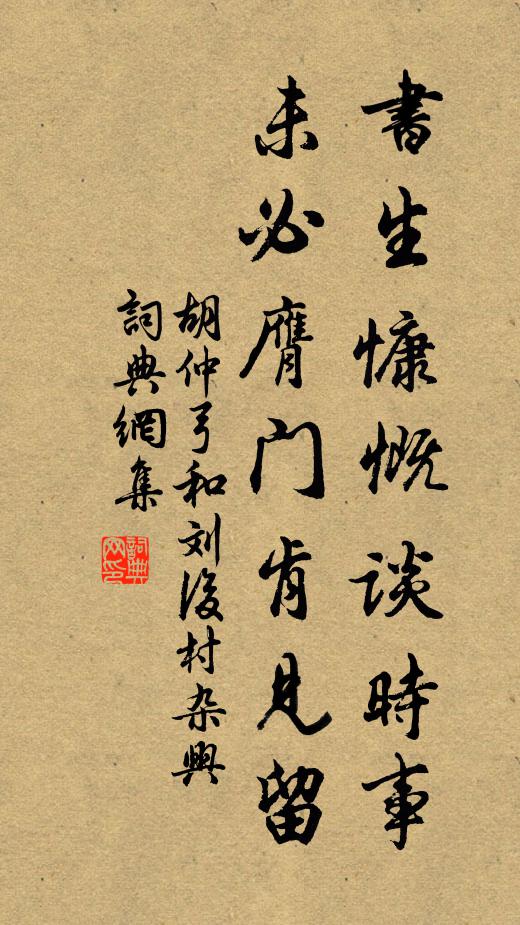 書生慷慨談時事
未必膺門肯見留
胡仲弓和刘後村杂興
詞典網集
詞典网印